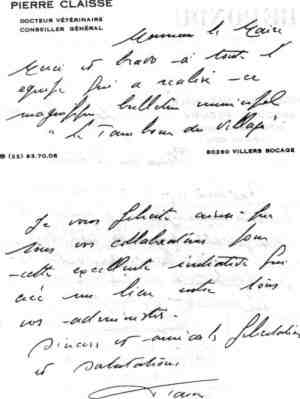 PIERRE CLAISSE
DOCTEUR VÉTÉRINAIRE
CONSEILLER GÉNÉRAL
REPONDU
Monsieur le Maire
Merci et bravo à toute l'
équipe qui a realisé ce
magnifique bulletin municipal
"le Tambour du Village"
☎ (22) 93.70.06
80260 VILLERS BOCAGE
Je vous félicite ainsi que
tous vos collaborateurs pour
cette excellente initiative qui
crée un lien entre tous
vos administrés.
Sincères et amicales félicitations
et salutations